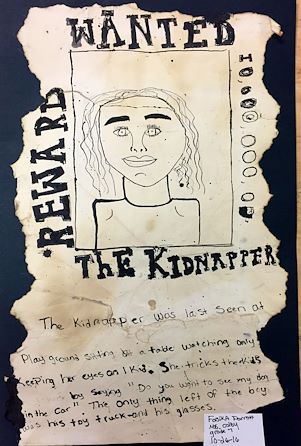 WANTED
REWARD
10,000,000.00
THE KIDNAPPER
The Kidnapper was last seen at
Playground sitting at a table watching only
Keeping her eyes on 1 kid. She tricks the kids
by saying "Do you want to see my dog
in the car" The only thing left of the boy
was his toy truck and his glasses.
Ms.
grade 7
10-26-16